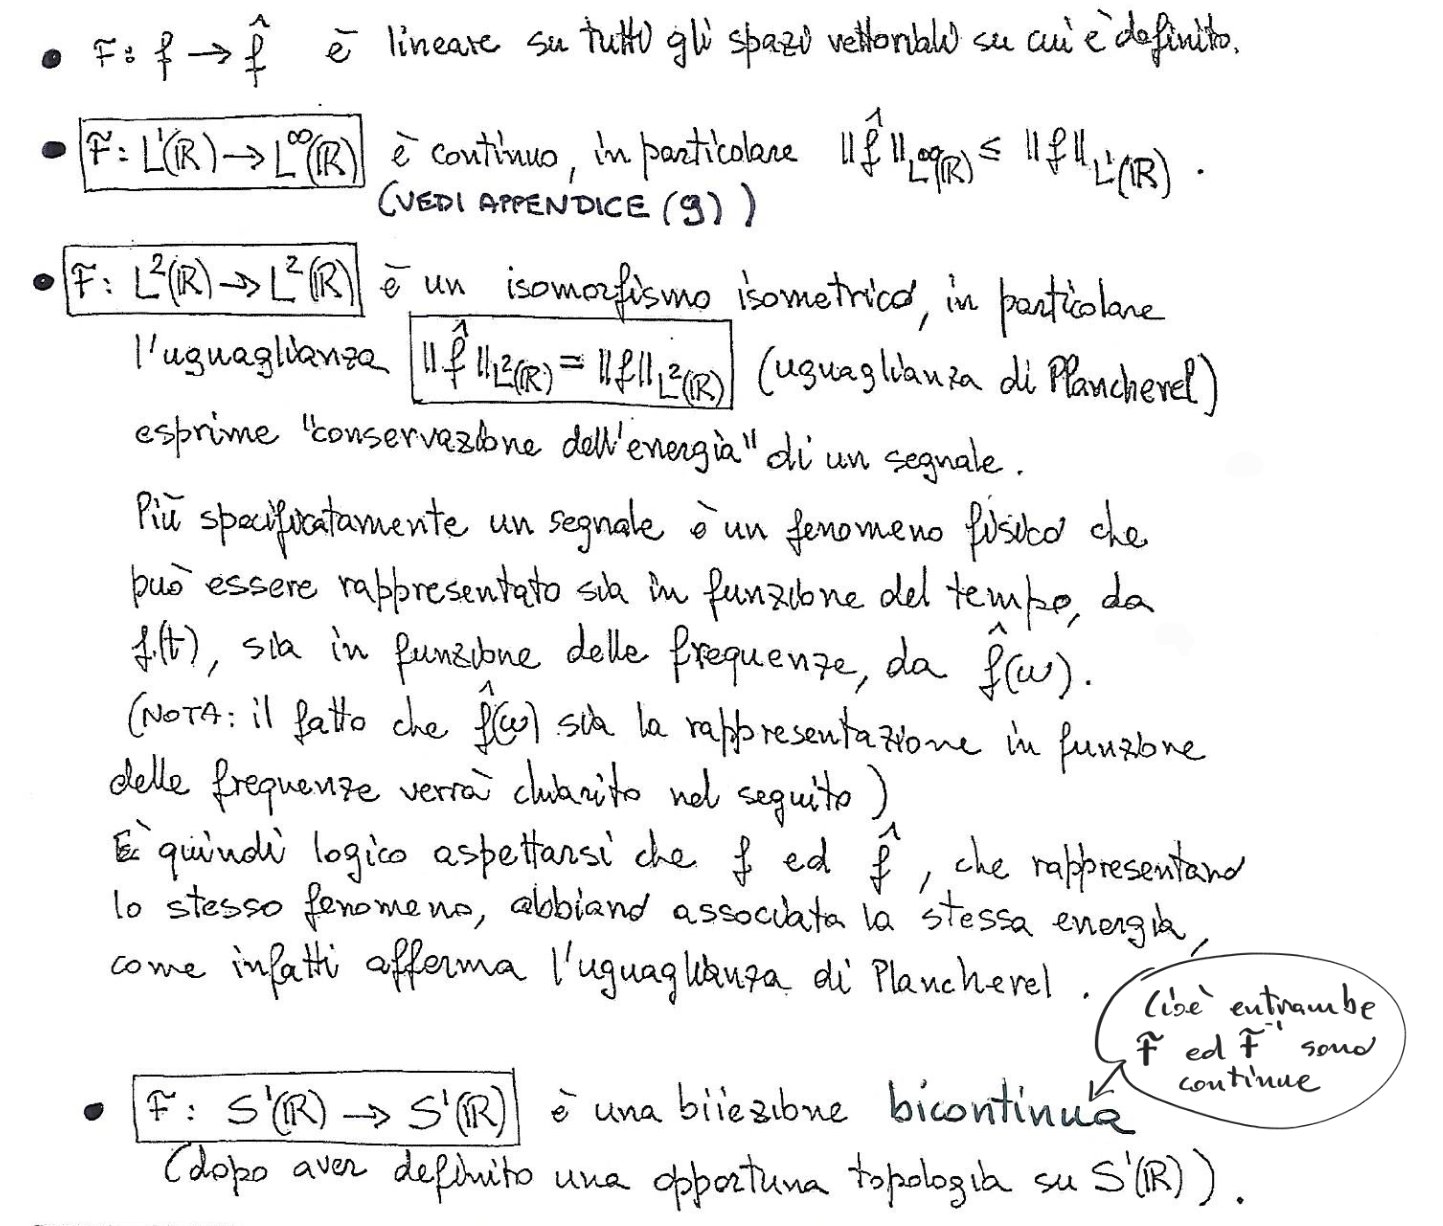 • F: f → f̂ è lineare su tutti gli spazi vettoriali su cui è definito.
• F: L¹(ℝ) → L^∞(ℝ) è continuo, in particolare ‖f̂‖_L^∞(ℝ) ≤ ‖f‖_L¹(ℝ).
(VEDI APPENDICE (9))
• F: L²(ℝ) → L²(ℝ) è un isomorfismo isometrico, in particolare
l'uguaglianza ‖f̂‖_L²(ℝ) = ‖f‖_L²(ℝ) (uguaglianza di Plancherel)
esprime "conservazione dell'energia" di un segnale.
Più specificatamente un segnale è un fenomeno fisico che
può essere rappresentato sia in funzione del tempo, da
f(t), sia in funzione delle frequenze, da f̂(ω).
(NOTA: il fatto che f̂(ω) sia la rappresentazione in funzione
delle frequenze verrà chiarito nel seguito)
È quindi logico aspettarsi che f ed f̂, che rappresentano
lo stesso fenomeno, abbiano associata la stessa energia,
come infatti afferma l'uguaglianza di Plancherel.
Cioè entrambe
F ed F⁻¹ sono
continue
• F: S'(ℝ) → S'(ℝ) è una biiezione bicontinua
(dopo aver definito una opportuna topologia su S'(ℝ)).